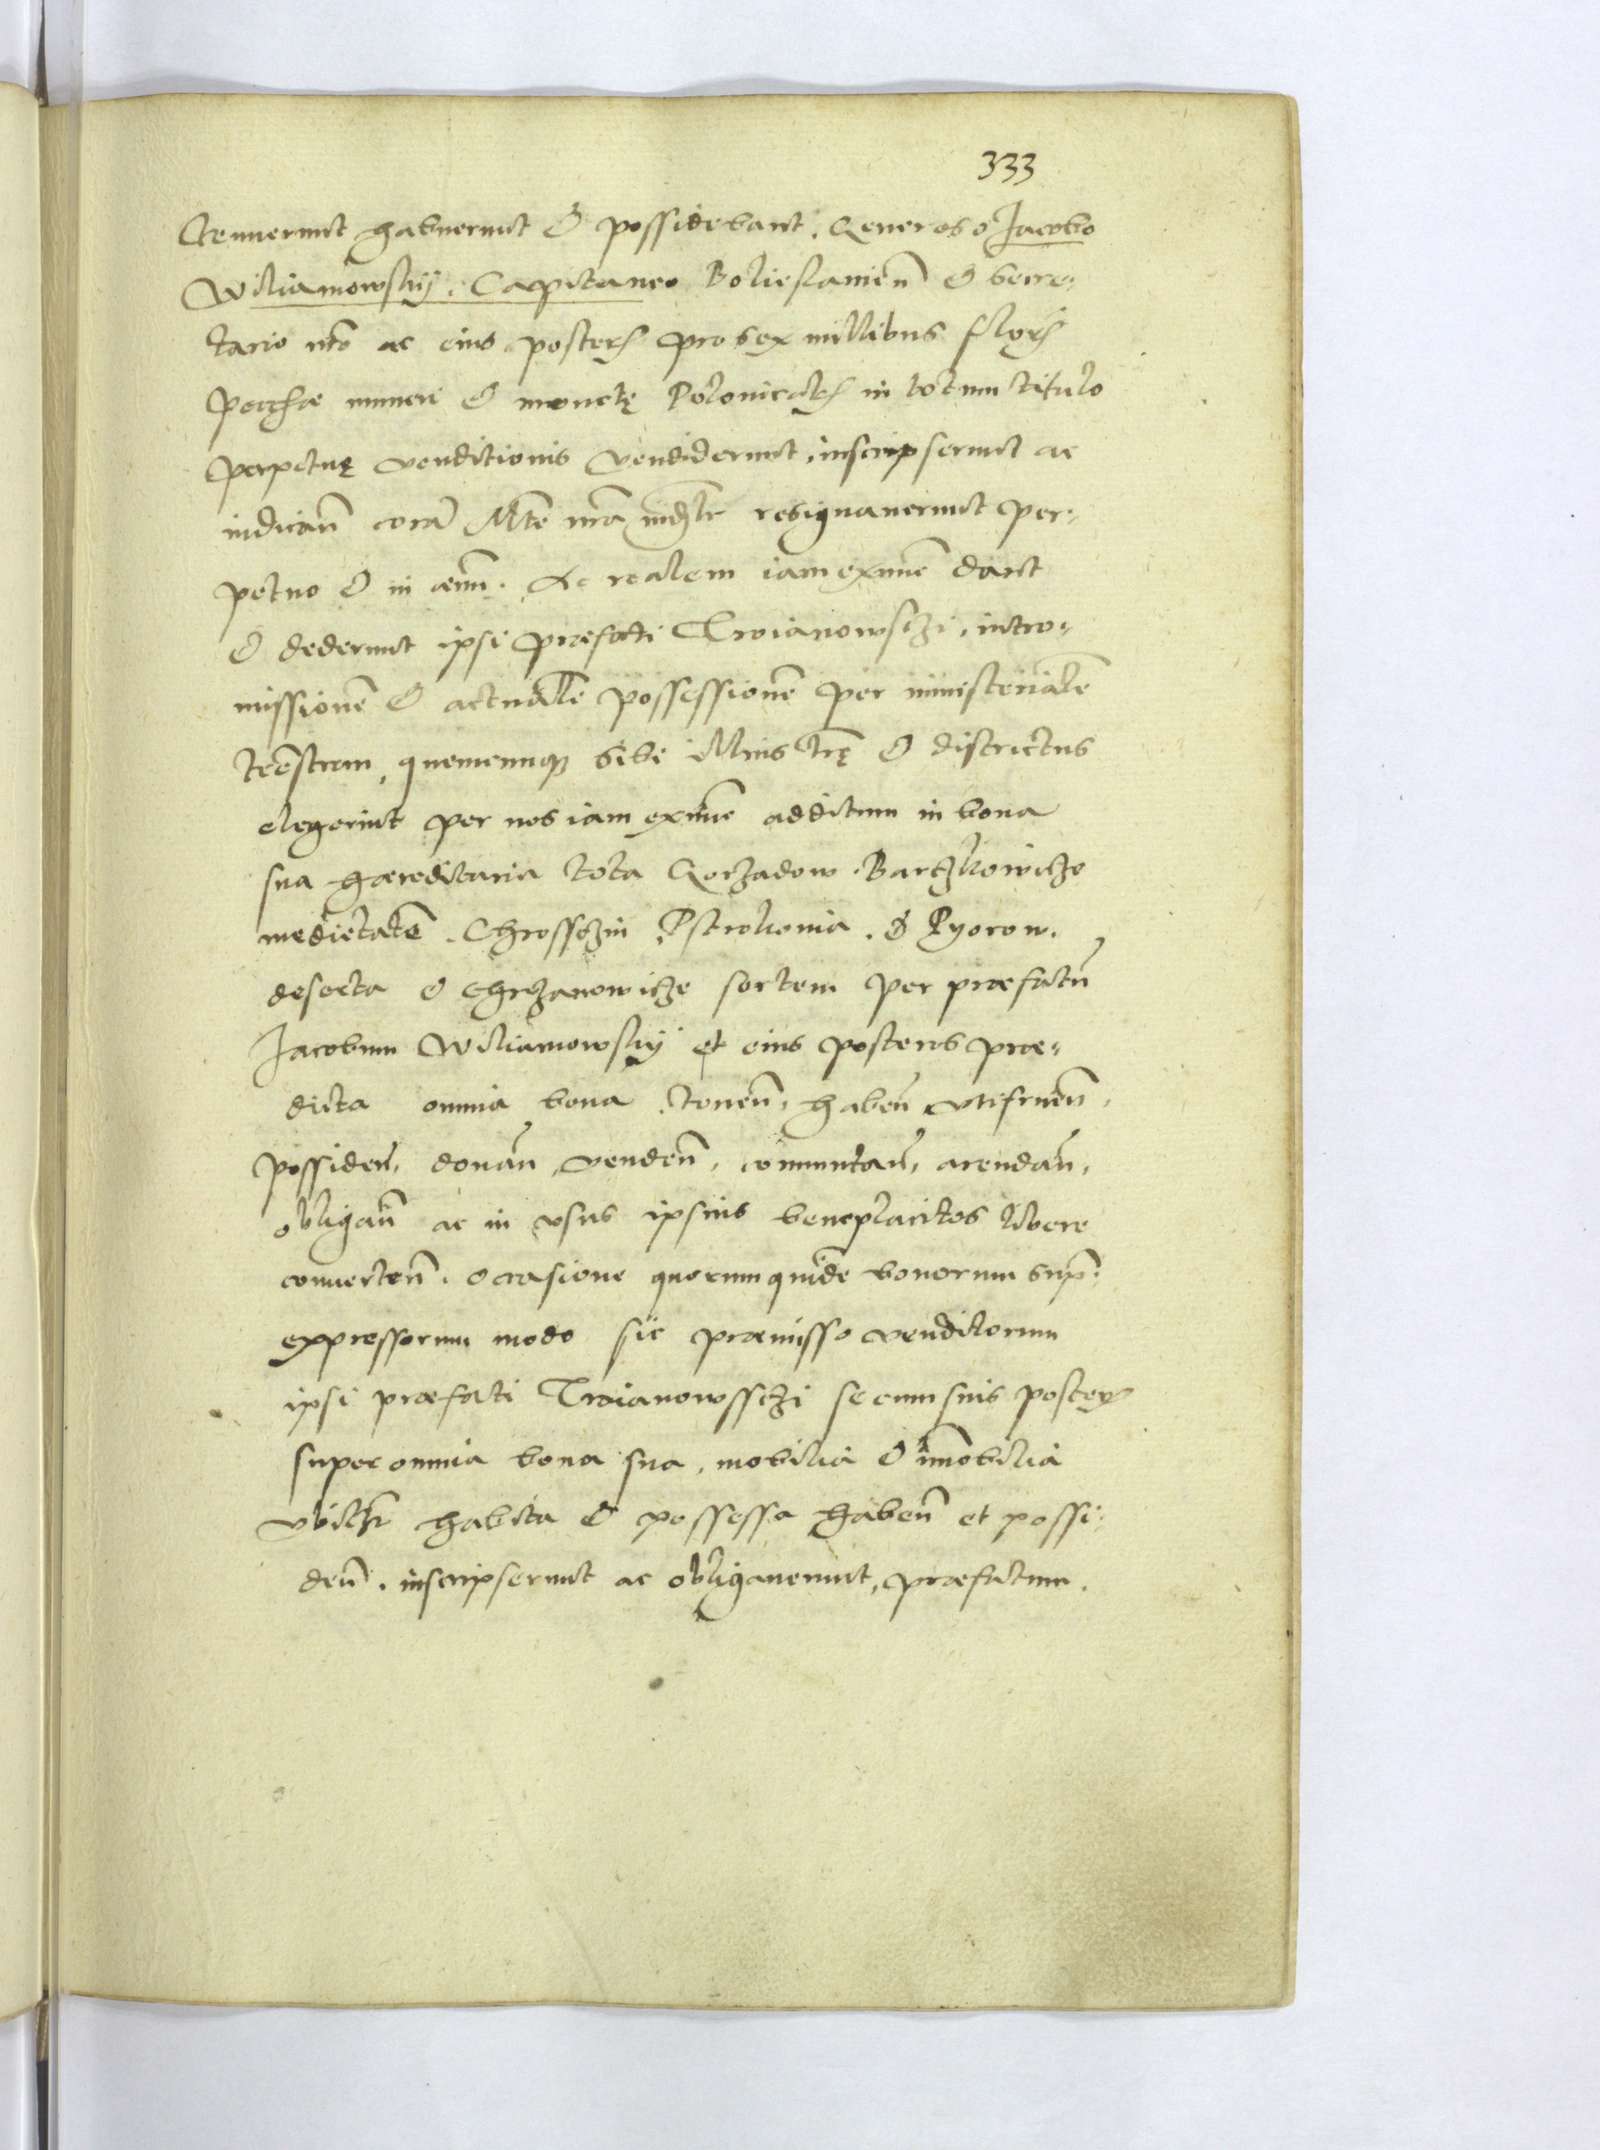 333
tenuerunt habuerunt & possidebant. Generoso Jacobo
Wiliamowskÿ. Capitaneo Bolieslauien̄ & secre-
tario nr̄o ac eius posteris pro sex millibus florenis
pecchæ numeri & monetę Polonicales in totum titulo
perpetuę venditionis vendiderunt, inscripserunt ac
iudicialr̄ corā Mte nr̄a resignauerunt per-
petuo & in æuum. Ac realem iam exnunc dant
& dederunt ipsi præfati Troianowsczi, intro-
missionē & actualē possessionē per ministerialē
terrestrem, quemcunque sibi illius trę & districtus
elegerint per nos iam exnunc additum in bona
sua hæreditaria tota Gorzadow. Bartkowicze
medietatē. Chrosszin, Pstrokonia. & Pyorow.
deserta & Chrzanowicze sortem per præfatū
Jacobum Wiliamowskÿ et eius posteros præ-
dicta omnia bona tenen̄, haben̄ vtifruen̄,
possiden̄, donan̄, venden̄, commutan̄, arendan̄,
obligan̄ ac in vsus ipsius beneplacitos libere
conuerten̄. occasione quorumquidē bonorum sup̄-
expressorum modo sic præmisso venditorum
ipsi præfati Troianowssczi se cum suis posteris
super omnia bona sua, mobilia & imobilia
vbilr̄ habita & possessa haben̄ et possi-
den̄. inscripserunt ac obligauerunt, præfatum.